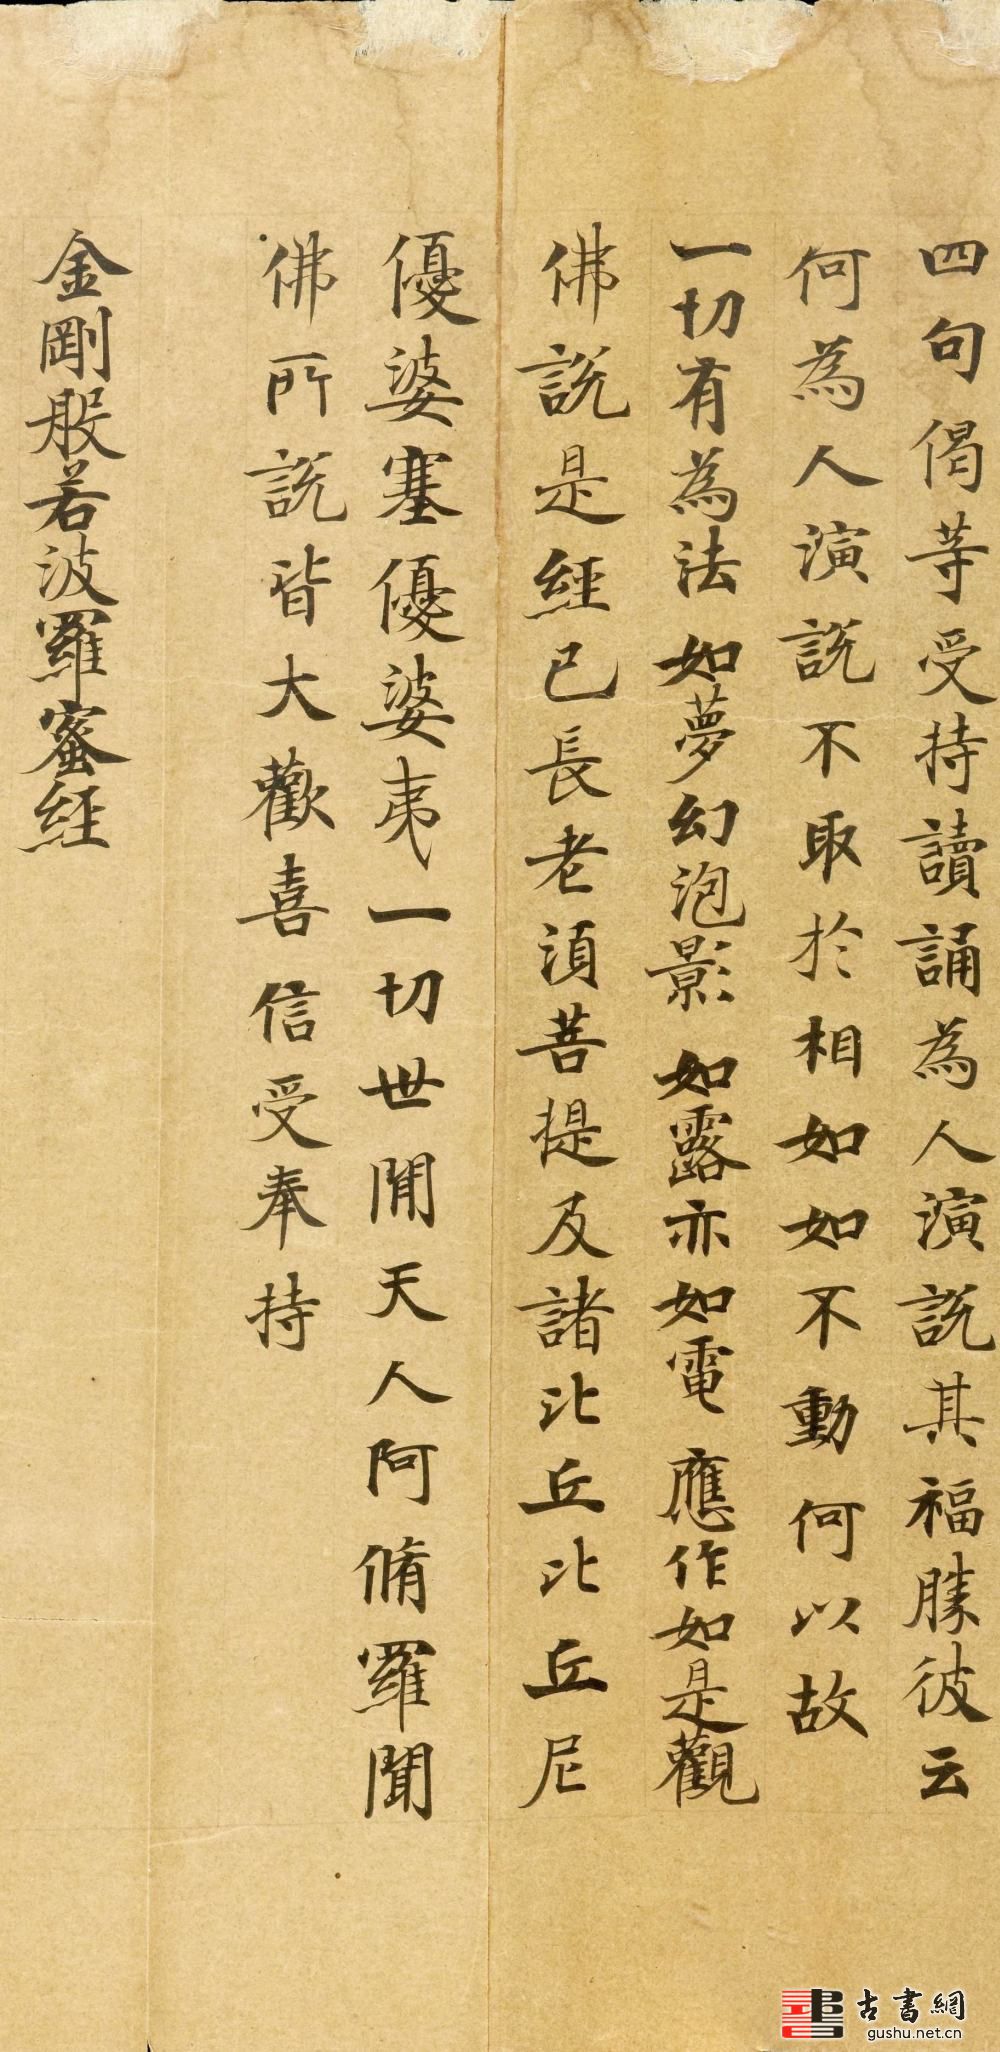 四句偈等受持讀誦為人演説其福勝彼云
何為人演説不取於相如如不動何以故
一切有為法 如夢幻泡影 如露亦如電 應作如是觀
佛説是經已長老湏菩提及諸比丘比丘尼
優婆塞優婆夷一切世閒天人阿脩羅聞
佛所説皆大歡喜信受奉持
金剛般若波羅蜜經
古書網
gushu.net.cn